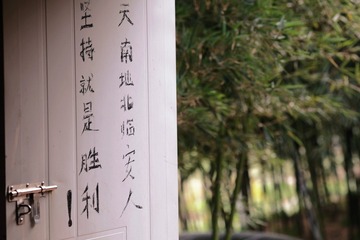 天南地北临安人
坚持就是胜利!